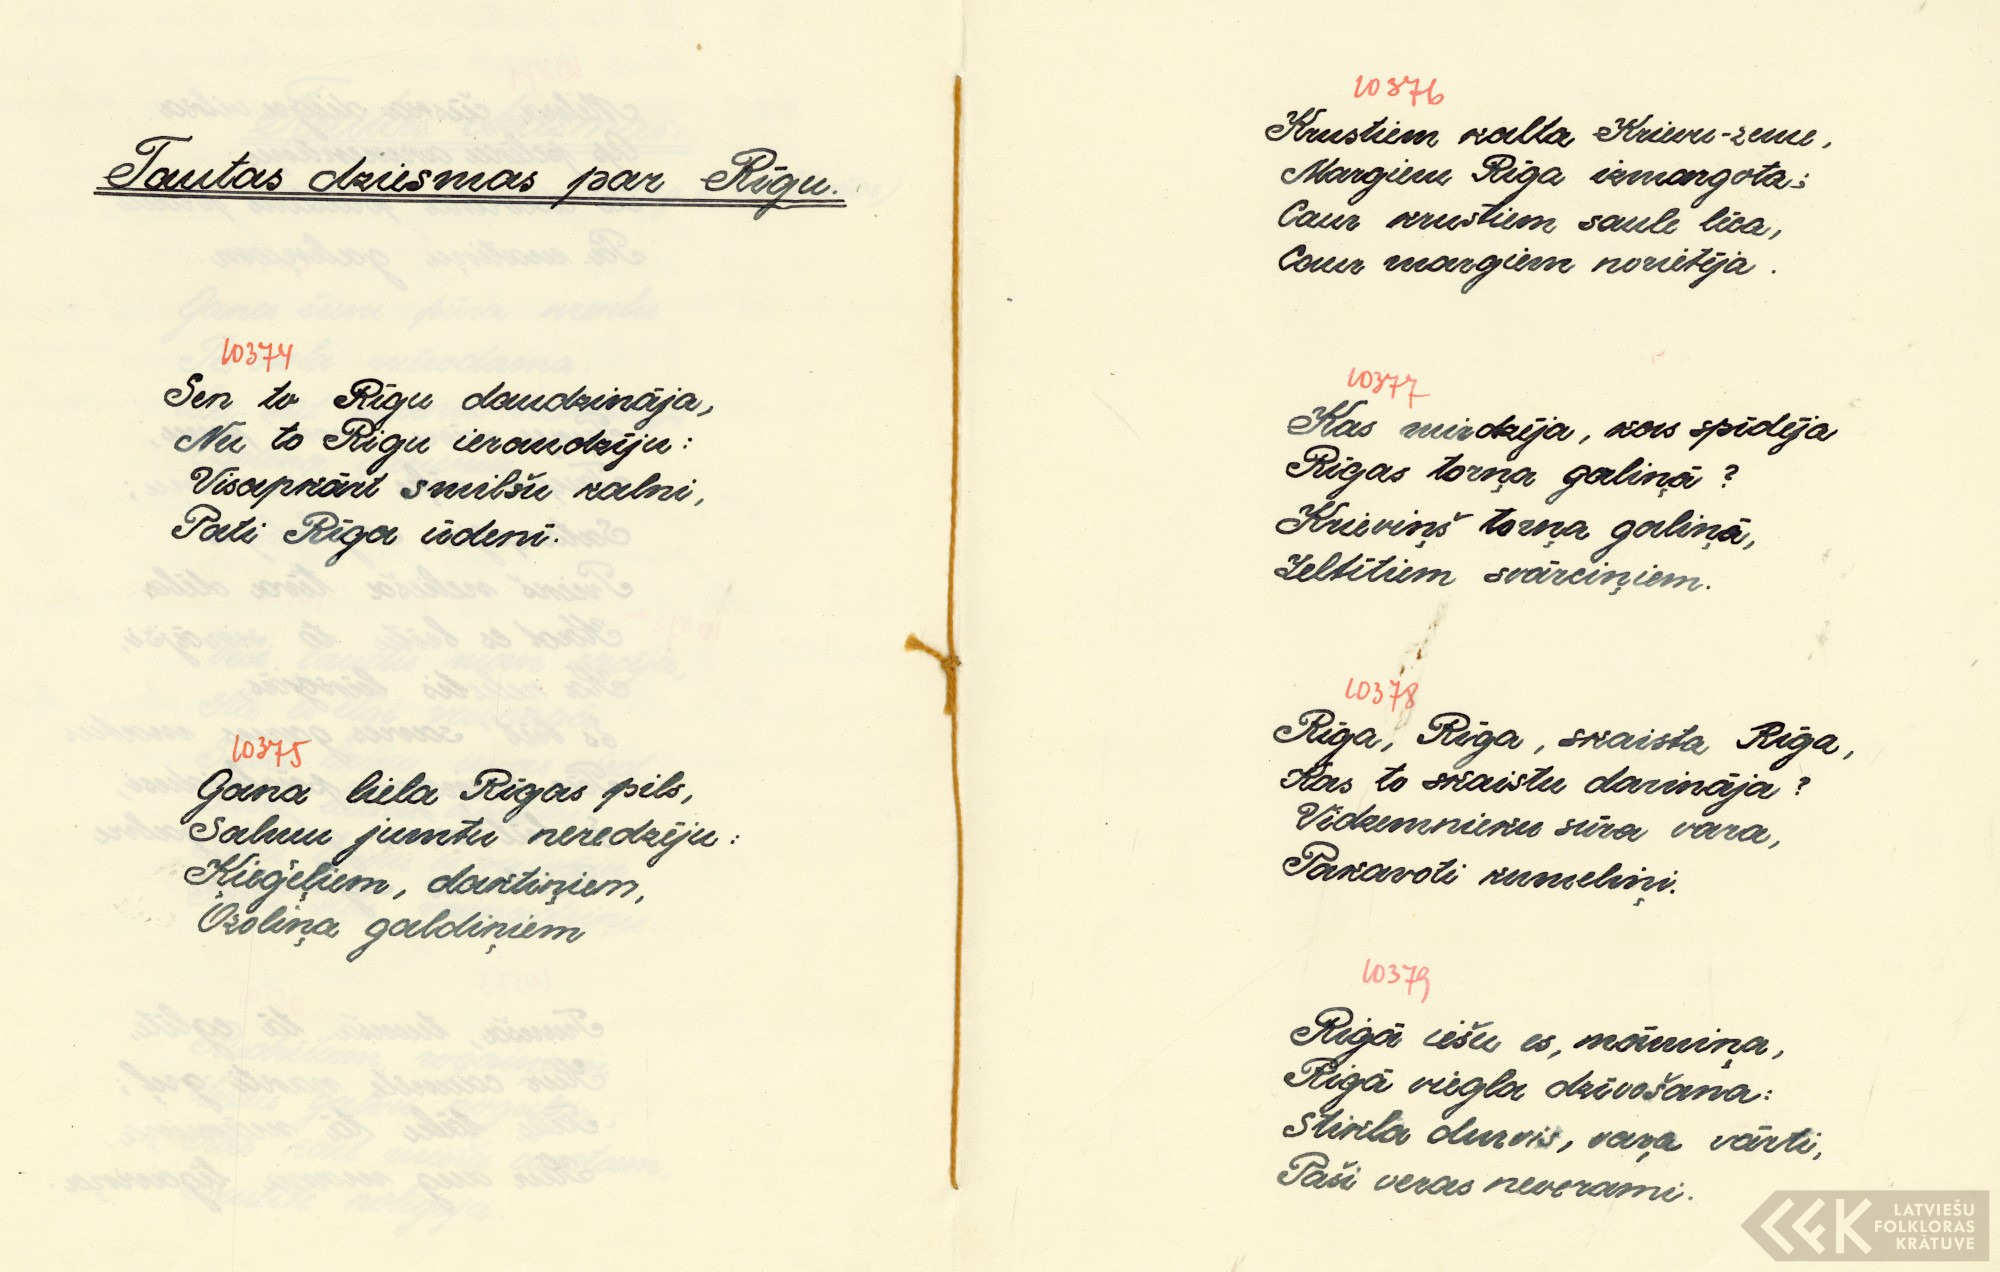 Tautas dziesmas par Rīgu.
10374
Sen to Rīgu daudzināja,
Nu to Rīgu ieraudzīju:
Visapkārt smilšu kalni,
Pati Rīga ūdenī.
10375
Gana liela Rīgas pils,
Salmu jumtu neredzēju:
Ķieģeļiem, dakstiņiem,
Ozoliņa galdiņiem
10376
Krustiem kalta Krievu-zeme,
Margiem Rīga izmargota;
Caur krustiem saule lēca,
Caur margiem norietēja.
10377
Kas mirdzēja, kas spīdēja
Rīgas torņa galiņā?
Krieviņš torņa galiņā,
Zeltītiem svārciņiem.
10378
Rīga, Rīga, skaista Rīga,
Kas to skaistu darināja?
Vidzemnieku sūra vara,
Pakavoti kumeliņi.
10379
Rīgā iešu es, māmiņa,
Rīgā viegla dzīvošana:
Stikla durvis, vaŗa vārti,
Paši veras neverami.
LATVIEŠU
FOLKLORAS
KRĀTUVE